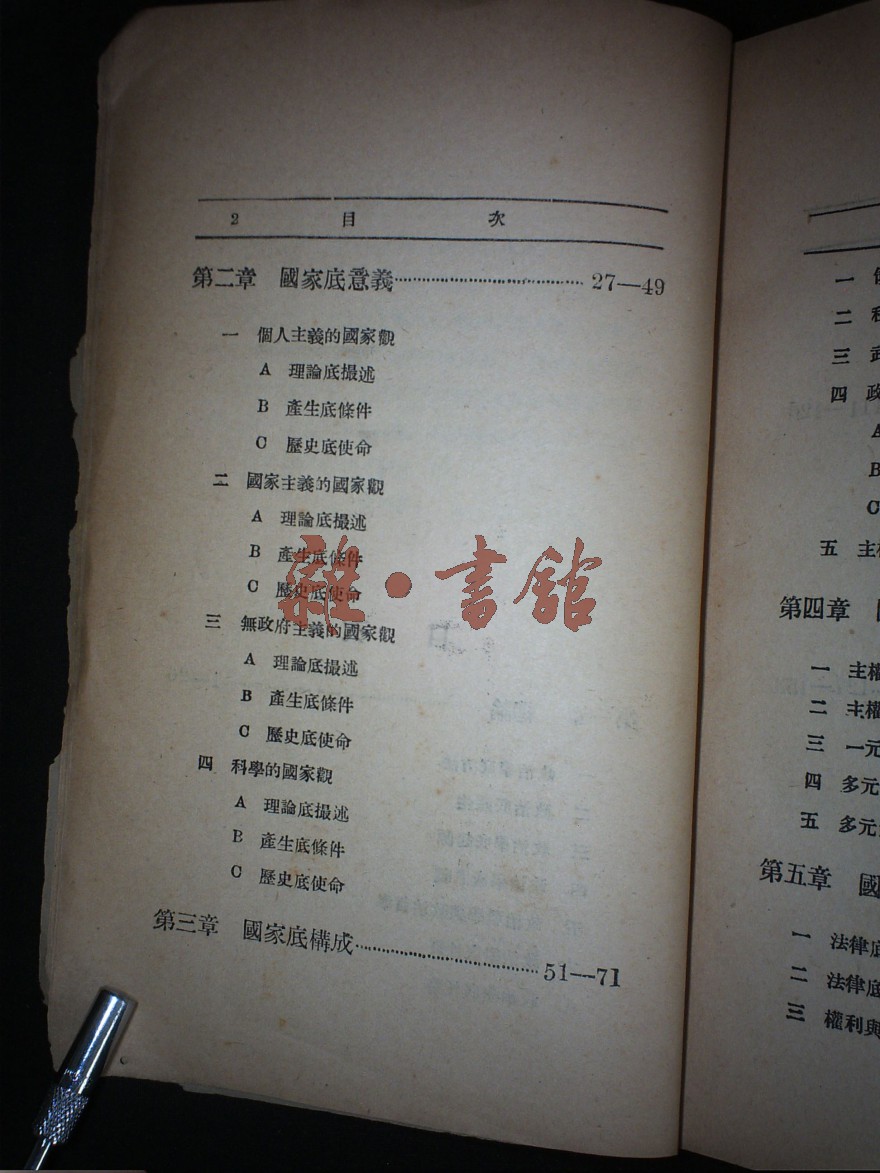 2 目 次
第二章 國家底意義 27—49
一 個人主義的國家觀
A 理論底撮述
B 產生底條件
C 歷史底使命
二 國家主義的國家觀
A 理論底撮述
B 產生底條件
C 歷史底使命
三 無政府主義的國家觀
A 理論底撮述
B 產生底條件
C 歷史底使命
四 科學的國家觀
A 理論底撮述
B 產生底條件
C 歷史底使命
第三章 國家底構成 51—71
雜·書館
一
二
三
四 政
A
B
C
五 主權
第四章
一 主權
二 主權
三 一元
四 多元
五 多元
第五章 國
一 法律底
二 法律底
三 權利與